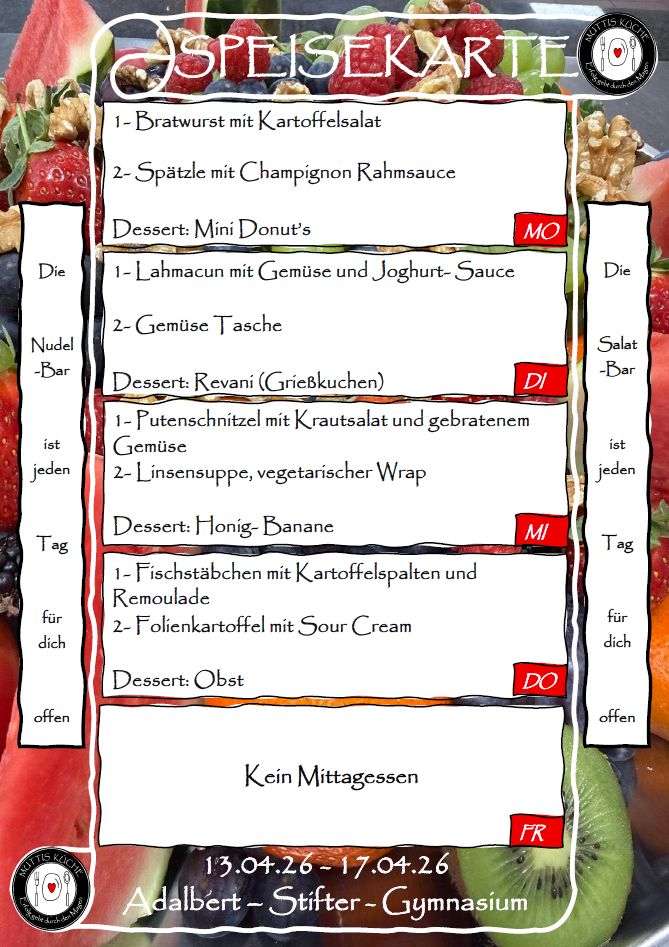 SPEISEKARTE
MUTTIS KÜCHE
Erfolg geht durch den Magen
1- Bratwurst mit Kartoffelsalat
2- Spätzle mit Champignon Rahmsauce
Dessert: Mini Donut's
MO
1- Lahmacun mit Gemüse und Joghurt- Sauce
2- Gemüse Tasche
Dessert: Revani (Grießkuchen)
DI
1- Putenschnitzel mit Krautsalat und gebratenem
Gemüse
2- Linsensuppe, vegetarischer Wrap
Dessert: Honig- Banane
MI
1- Fischstäbchen mit Kartoffelspalten und
Remoulade
2- Folienkartoffel mit Sour Cream
Dessert: Obst
DO
Kein Mittagessen
FR
Die
Nudel
-Bar
ist
jeden
Tag
für
dich
offen
Die
Salat
-Bar
ist
jeden
Tag
für
dich
offen
13.04.26 - 17.04.26
Adalbert – Stifter - Gymnasium
MUTTIS KÜCHE
Erfolg geht durch den Magen